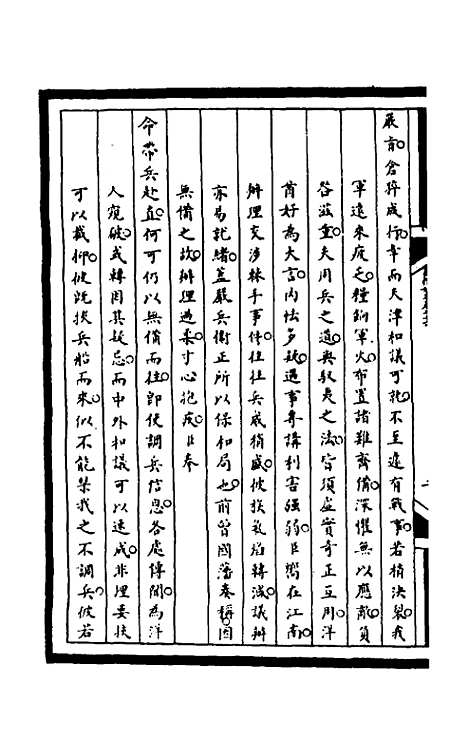 嚴旨倉猝成行幸而天津和議可就不至遽有戰事若稍決裂我
軍遠來疲乏糧餉軍火布置諸難齊備深懼無以應敵負
咎茲重夫用兵之道與馭夷之法皆須虛實奇正互用洋
酋好為大言內怯多疑遇事專講利害強弱臣嚮在江南
辦理交涉棘手事件往往兵威稍盛彼族氣焰轉減議辦
亦易就緒蓋嚴兵衛正所以保和局也前曾國藩奏稱因
無備之故辦理過柔寸心抱疚且奉
命帶兵赴直何可仍以無備而往即使調兵信息各處傳聞為洋
人窺破或轉因其疑忌而中外和議可以速成非理要挾
可以截抑彼既挾兵船而來似不能禁我之不調兵彼若